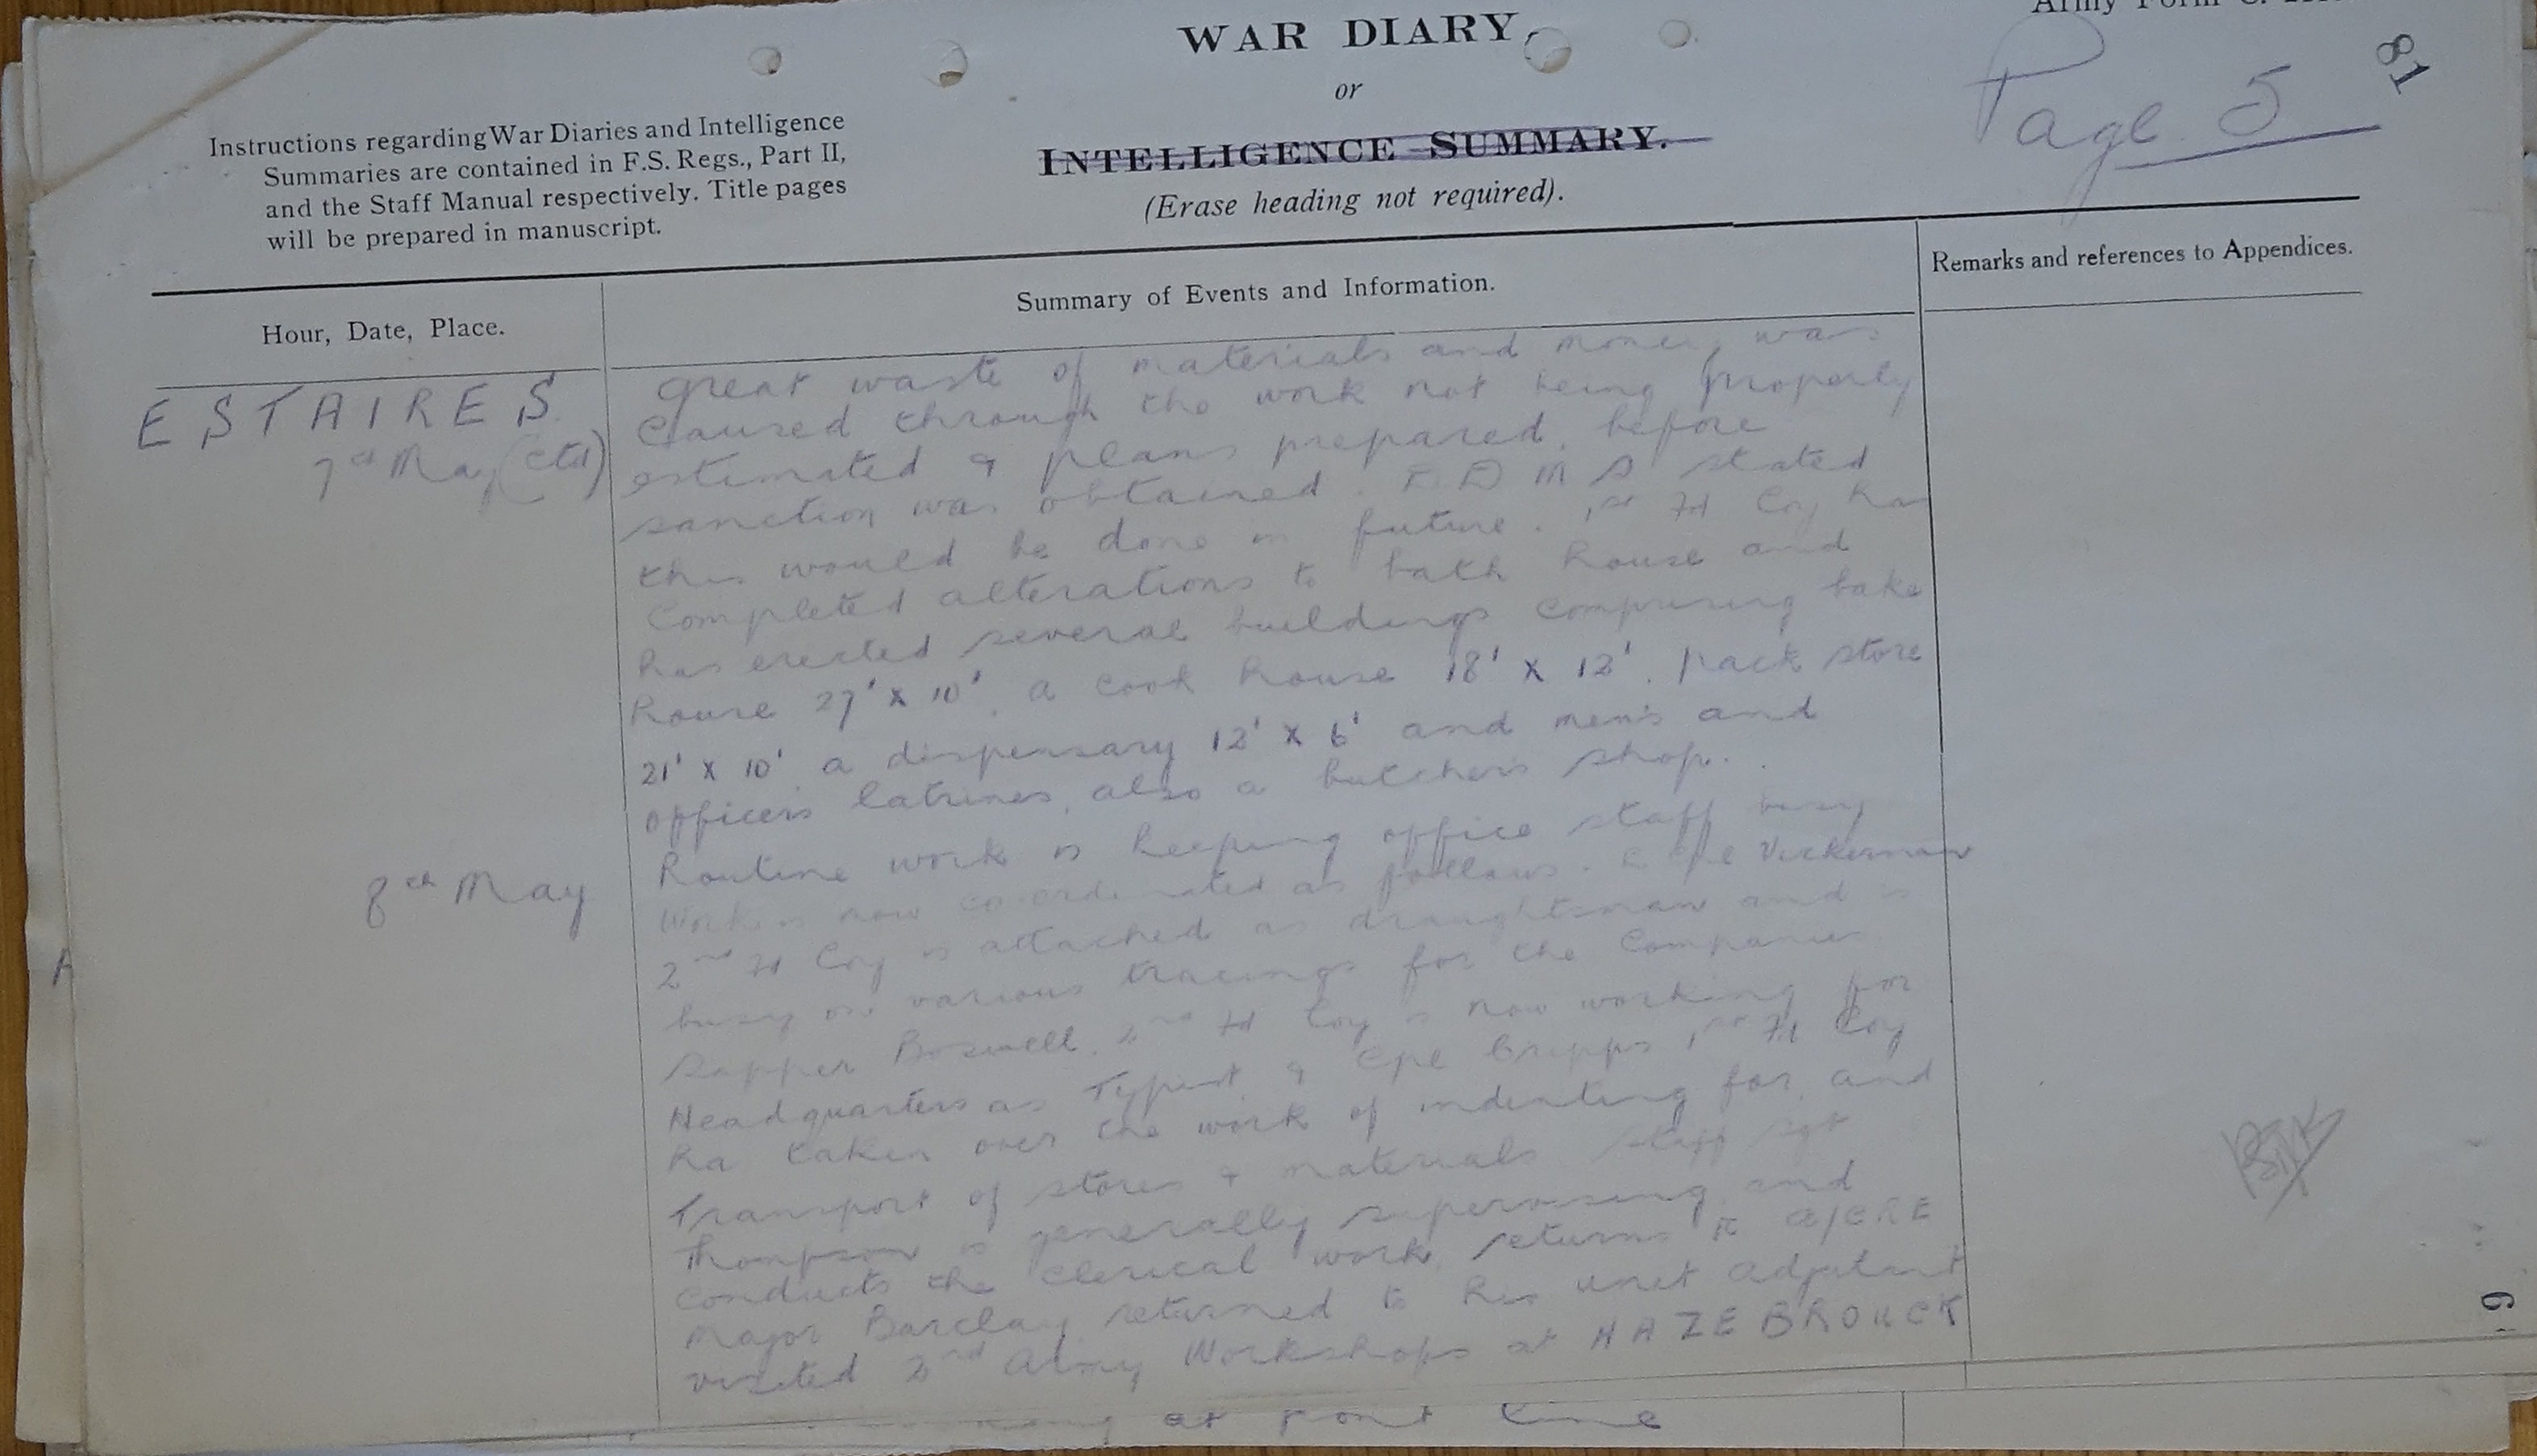 WAR DIARY
or
INTELLIGENCE SUMMARY.
(Erase heading not required).
Army Form C.
81
Page 5
Instructions regarding War Diaries and Intelligence
Summaries are contained in F.S. Regs., Part II,
and the Staff Manual respectively. Title pages
will be prepared in manuscript.
Hour, Date, Place.
Summary of Events and Information.
Remarks and references to Appendices.
ESTAIRES
7th May (ctd)
great waste of materials and money was
caused through the work not being properly
estimated & plans prepared before
sanction was obtained. DDMS stated
this would be done in future. 1st Fd Coy has
completed alterations to bath house and
has erected several buildings comprising bake
house 27' x 10', a cook house 18' x 12', pack store
21' x 10' a dispensary 12' x 6' and men's and
officers latrines, also a butcher's shop.
8th May
Routine work is keeping office staff busy
Work is now co-ordinated as follows. Cpl Vickerman
2nd Fd Coy is attached as draughtsman and is
busy on various tracings for the Companies
Sapper Boswell 2nd Fd Coy is now working for
Headquarters as Typist & Cpl Cripps 1st Fd Coy
has taken over the work of indenting for and
Transport of stores & materials Staff Sgt
Thompson is generally supervising and
conducts the clerical work returns to CRE
Major Barclay returned to his unit Adjutant
visited 2nd Army Workshops at HAZEBROUCK
at front line
6